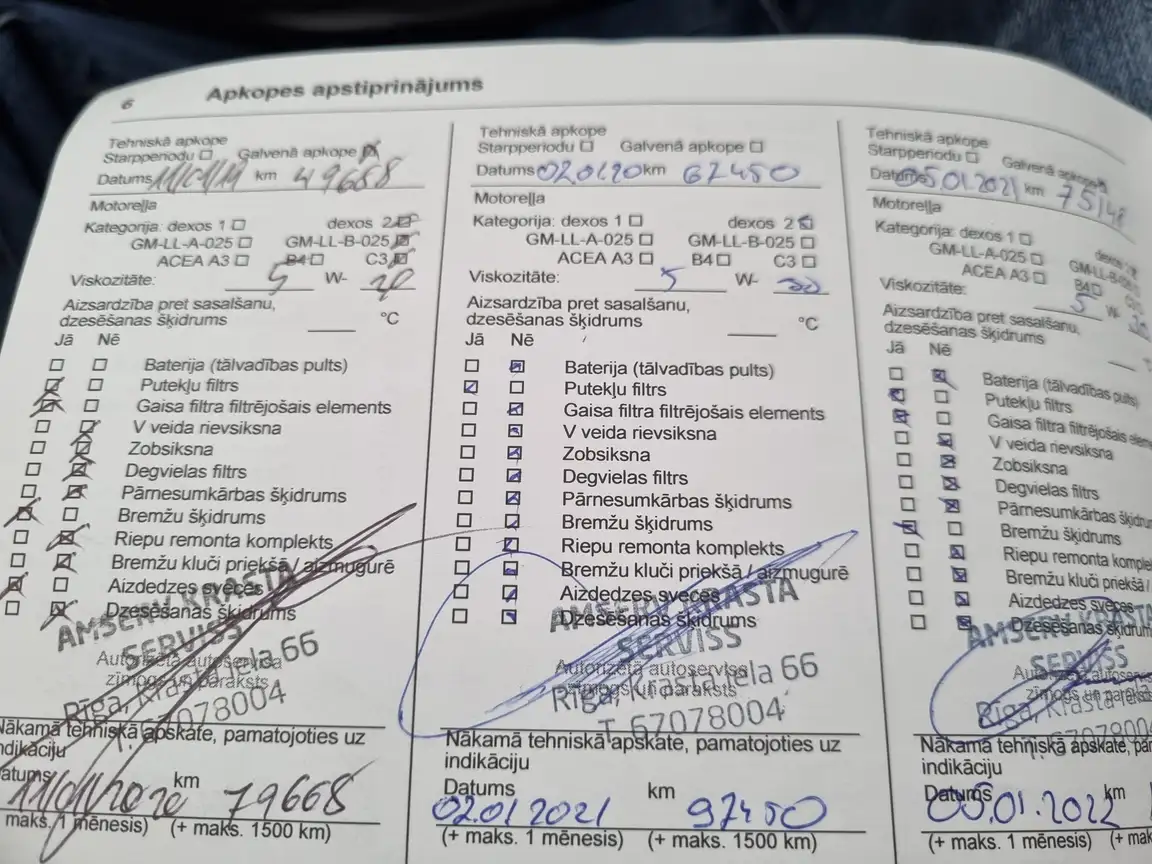 6
Apkopes apstiprinājums
Tehniskā apkope
Starpperiodu Galvenā apkope
Datums km 49668
Motoreļļa
Kategorija: dexos 1 dexos 2
GM-LL-A-025 GM-LL-B-025
ACEA A3 B4 C3
Viskozitāte: 5 W-
Aizsardzība pret sasalšanu,
dzesēšanas šķidrums °C
Jā Nē
Baterija (tālvadības pults)
Putekļu filtrs
Gaisa filtra filtrējošais elements
V veida rievsiksna
Zobsiksna
Degvielas filtrs
Pārnesumkārbas šķidrums
Bremžu šķidrums
Riepu remonta komplekts
Bremžu kluči priekšā / aizmugurē
Aizdedzes sveces
Dzesēšanas šķidrums
AMSERV KRASTA
SERVISS
Autorizētā autoservisa
zīmogs un paraksts
Rīga, Krasta iela 66
T. 67078004
Nākamā tehniskā apskate, pamatojoties uz
indikāciju
Datums km
11/01/2020 79668
maks. 1 mēnesis) (+ maks. 1500 km)
Tehniskā apkope
Starpperiodu Galvenā apkope
Datums 02.01.20 km 67450
Motoreļļa
Kategorija: dexos 1 dexos 2
GM-LL-A-025 GM-LL-B-025
ACEA A3 B4 C3
Viskozitāte: 5 W- 30
Aizsardzība pret sasalšanu,
dzesēšanas šķidrums °C
Jā Nē
Baterija (tālvadības pults)
Putekļu filtrs
Gaisa filtra filtrējošais elements
V veida rievsiksna
Zobsiksna
Degvielas filtrs
Pārnesumkārbas šķidrums
Bremžu šķidrums
Riepu remonta komplekts
Bremžu kluči priekšā / aizmugurē
Aizdedzes sveces
Dzesēšanas šķidrums
AMSERV KRASTA
SERVISS
Autorizētā autoservisa
zīmogs un paraksts
Rīga, Krasta iela 66
T. 67078004
Nākamā tehniskā apskate, pamatojoties uz
indikāciju
Datums km
02.01.2021 97450
(+ maks. 1 mēnesis) (+ maks. 1500 km)
Tehniskā apkope
Starpperiodu Galvenā apkope
Datums 05.01.2021 km 75148
Motoreļļa
Kategorija: dexos 1 dexos
GM-LL-A-025 GM-LL-B-025
ACEA A3 B4
Viskozitāte: 5 W- 30
Aizsardzība pret sasalšanu,
dzesēšanas šķidrums
Jā Nē
Baterija (tālvadības pults)
Putekļu filtrs
Gaisa filtra filtrējošais elem
V veida rievsiksna
Zobsiksna
Degvielas filtrs
Pārnesumkārbas šķidru
Bremžu šķidrums
Riepu remonta komple
Bremžu kluči priekšā /
Aizdedzes sveces
Dzesēšanas šķidrum
AMSERV KRASTA
SERVISS
Autorizētā autoservis
zīmogs un paraksts
Rīga, Krasta iela
67078004
Nākamā tehniskā apskate, pa
indikāciju
Datums km
05.01.2022
(+ maks. 1 mēnesis) (+ m